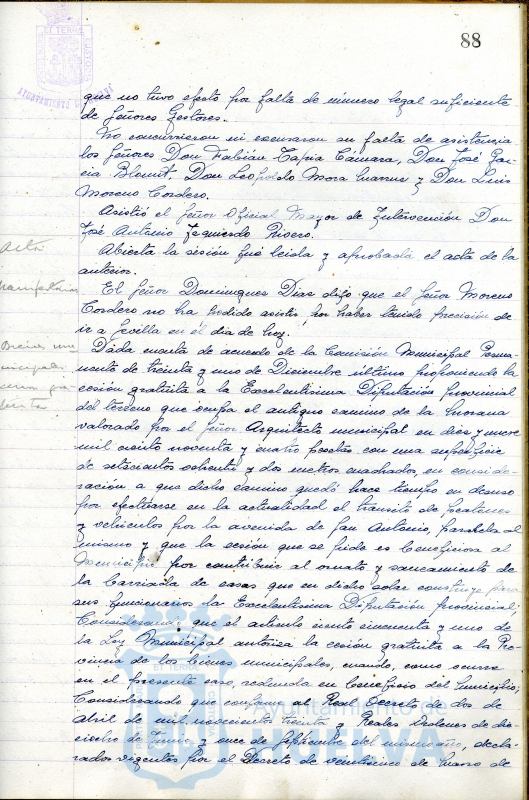 88
que no tuvo efecto por falta de número legal suficiente
de Señores Gestores.
No concurrieron ni excusaron su falta de asistencia
los Señores Don Fabián Tapia Cámara, Don José Gar-
cía Don Leopoldo Mora y Don Luis
Moreno Cordero.
Asistió el Señor Oficial Mayor de Intervención Don
José Antonio Izquierdo Rivero.
Abierta la sesión fué leida y aprobada el acta de la
anterior.
Acta
El Señor Domínguez Dias dijo que el Señor Moreno
Cordero no ha podido asistir por haber tenido precisión de
ir a Sevilla en el día de hoy.
Dada cuenta de acuerdo de la Comisión Municipal Perma-
nente de treinta y uno de Diciembre último proponiendo la
cesión gratuita a la Excelentísima Diputación Provincial
del terreno que ocupa el antiguo camino de la
valorado por el Señor Arquitecto municipal en diez y nueve
mil ciento noventa y cuatro pesetas con una superficie
de setecientos ochenta y dos metros cuadrados, en conside-
ración a que dicho camino quedó hace tiempo en desuso
por efectuarse en la actualidad el tránsito de peatones
y vehículos por la avenida de San Antonio, paralela al
mismo y que la cesión que se pide es beneficiosa al
Municipio por contribuir al ornato y saneamiento de
la barriada de casas que en dicho solar construye para
sus funcionarios la Excelentísima Diputación provincial;
Considerando que el artículo ciento cincuenta y uno de
la Ley Municipal autoriza la cesión gratuita a la Pro-
vincia de los bienes municipales, cuando, como ocurre
en el presente caso, redunda en beneficio del Municipio;
Considerando que conforme al Real Decreto de dos de
abril de mil novecientos treinta y Reales Ordenes de die-
ciocho de Junio y once de Septiembre del mismo año, decla-
rados vigentes por el Decreto de veinticinco de Marzo de
Ayuntamiento de
HUELVA